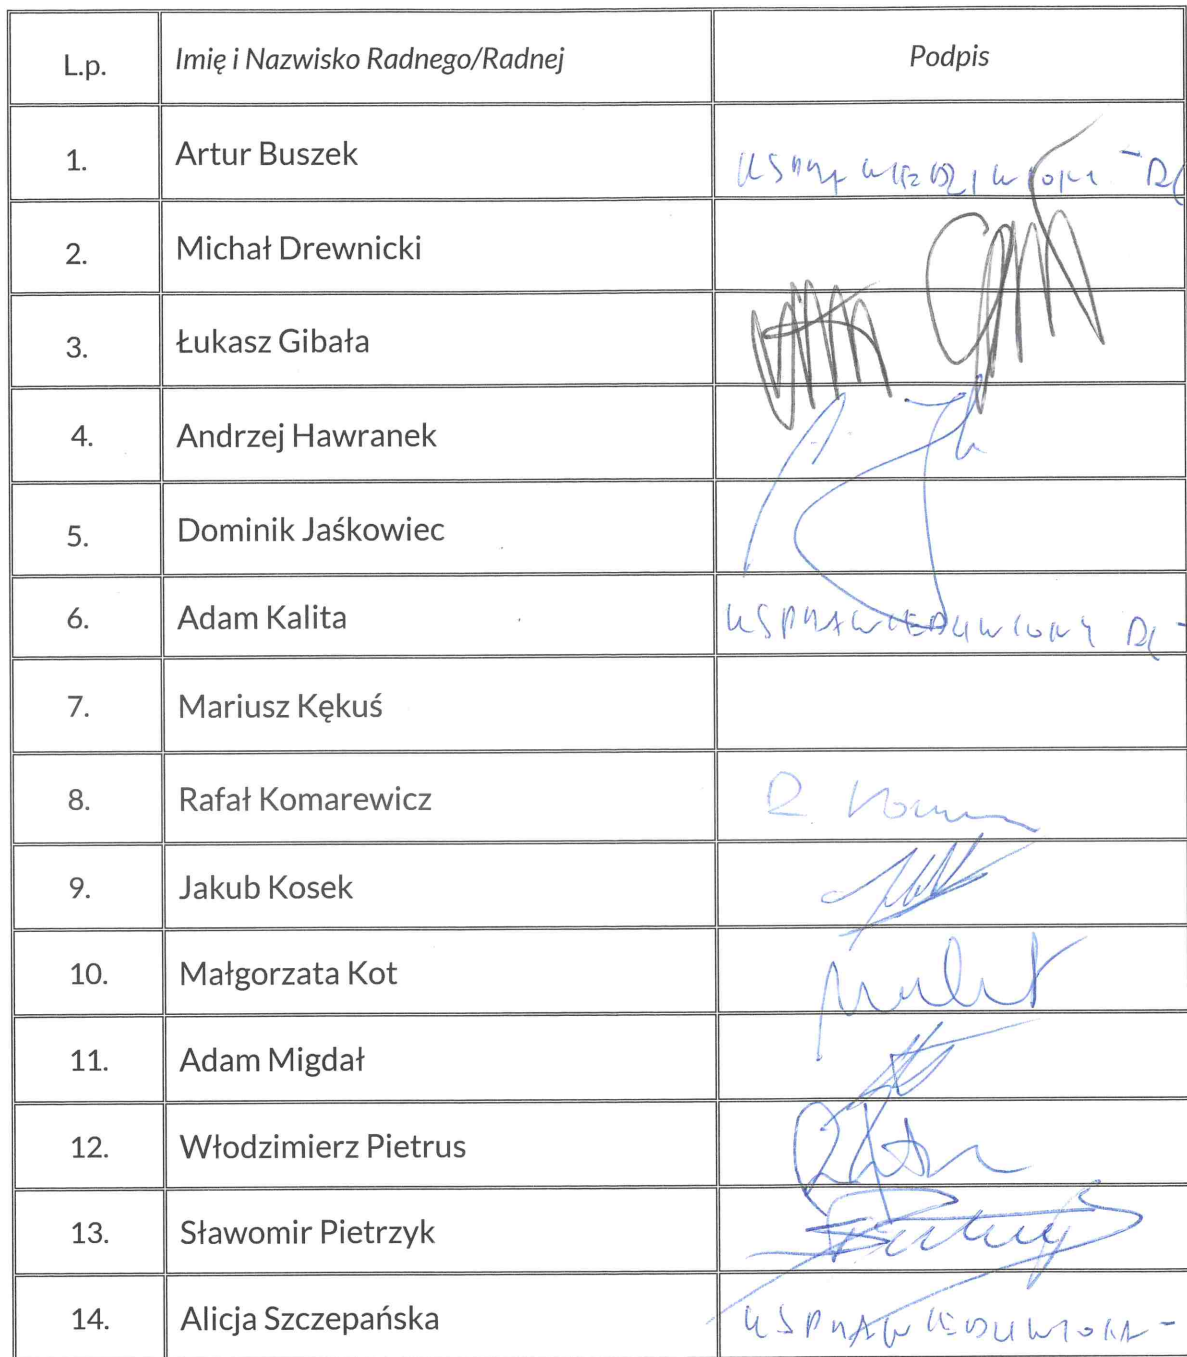 L.p. Imię i Nazwisko Radnego/Radnej Podpis
1. Artur Buszek
2. Michał Drewnicki
3. Łukasz Gibała
4. Andrzej Hawranek
5. Dominik Jaśkowiec
6. Adam Kalita USPRAWIEDLIWIONY
7. Mariusz Kękuś
8. Rafał Komarewicz R.
9. Jakub Kosek
10. Małgorzata Kot
11. Adam Migdał
12. Włodzimierz Pietrus
13. Sławomir Pietrzyk
14. Alicja Szczepańska USPRAWIEDLIWIONA -